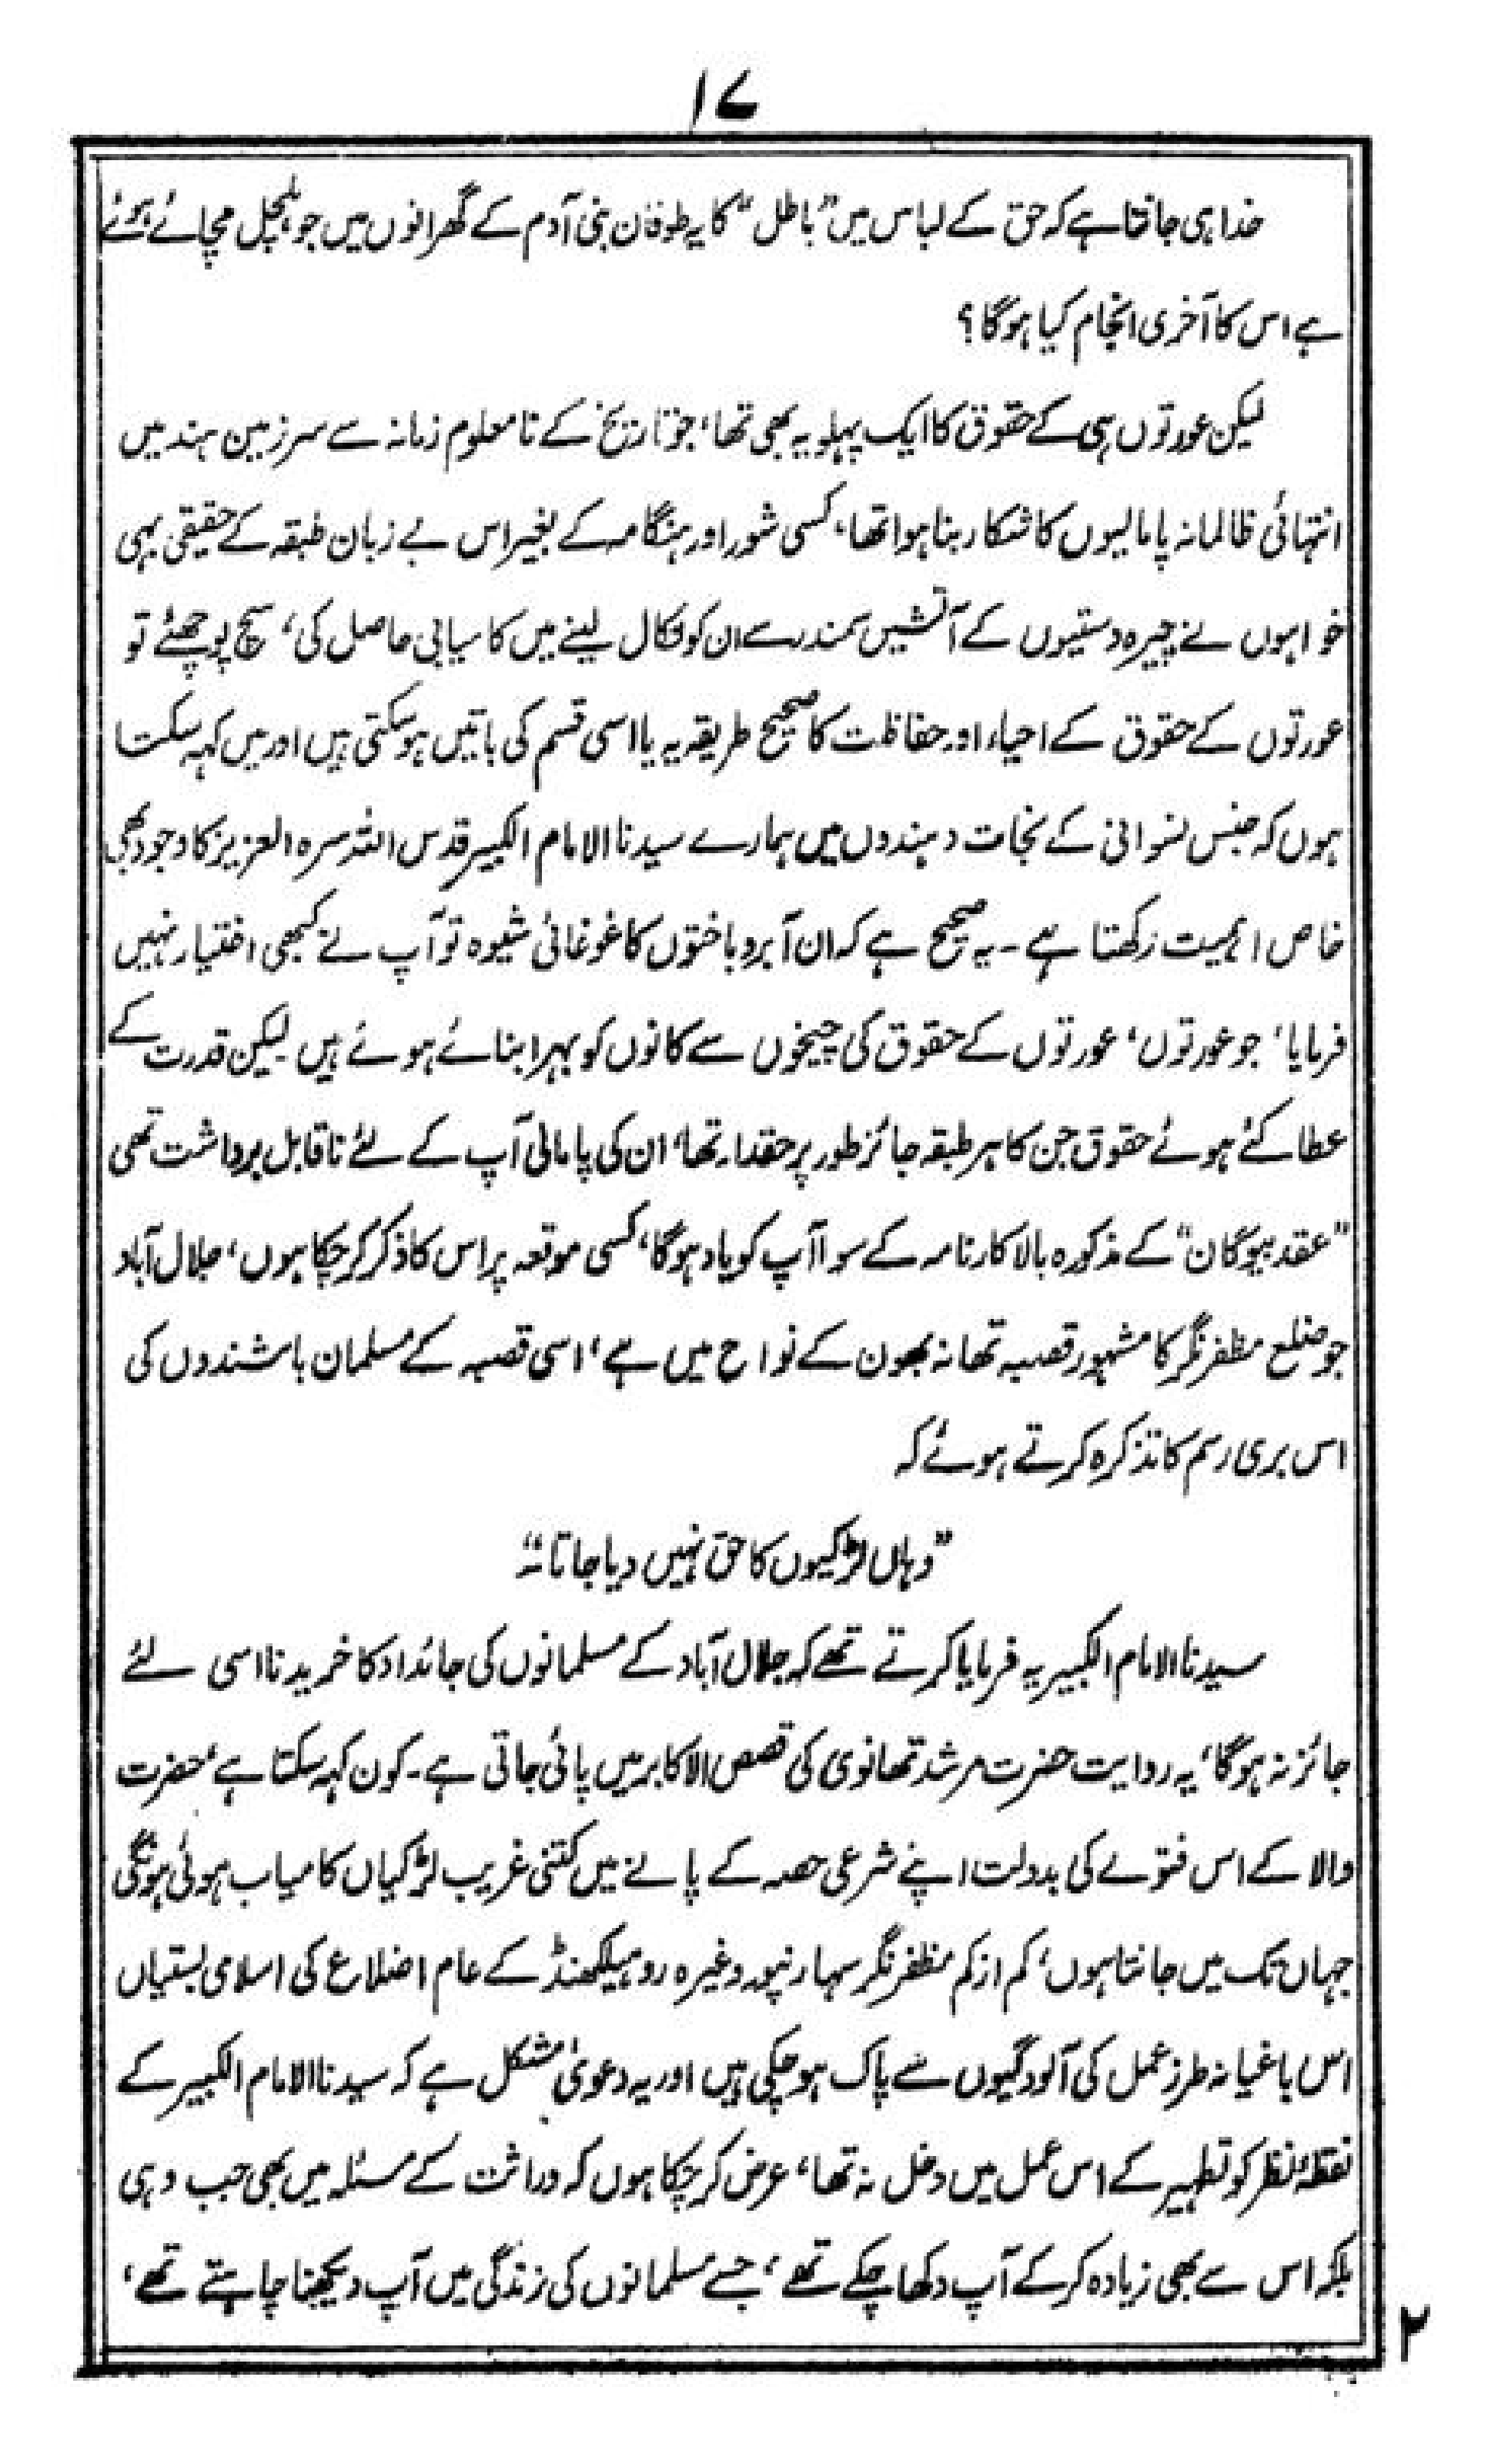 ۱۷
خدا ہی جانتا ہے کہ حق کے لباس میں "باطل" کا یہ طوفان بنی آدم کے گھرانوں میں جو ہلچل مچائے ہوئے
ہے اس کا آخری انجام کیا ہوگا؟
لیکن عورتوں ہی کے حقوق کا ایک پہلو یہ بھی تھا، جو تاریخ کے نامعلوم زمانہ سے سرزمین ہند میں
انتہائی ظالمانہ پامالیوں کا شکار بنا ہوا تھا، کسی شور اور ہنگامہ کے بغیر اس بے زبان طبقہ کے حقیقی بہی
خواہوں نے چیرہ دستیوں کے آتشیں سمندر سے ان کو نکال لینے میں کامیابی حاصل کی، سچ پوچھئے تو
عورتوں کے حقوق کے احیاء اور حفاظت کا صحیح طریقہ یہ یا اسی قسم کی باتیں ہوسکتی ہیں اور میں کہہ سکتا
ہوں کہ جنس نسوانی کے نجات دہندوں میں ہمارے سیدنا الامام الکبیر قدس اللہ سرہ العزیز کا وجود بھی
خاص اہمیت رکھتا ہے۔ یہ صحیح ہے کہ ان آبرو باختوں کا غوغائی شیوہ تو آپ نے کبھی اختیار نہیں
فرمایا، جو عورتوں، عورتوں کے حقوق کی چیخوں سے کانوں کو بہرا بنائے ہوئے ہیں لیکن قدرت کے
عطا کئے ہوئے حقوق جن کا ہر طبقہ جائز طور پر حقدار تھا، ان کی پامالی آپ کے لئے ناقابل برداشت تھی
"عقد بیوگان" کے مذکورہ بالا کارنامہ کے سوا آپ کو یاد ہوگا، کسی موقعہ پر اس کا ذکر کرچکا ہوں، جلال آباد
جو ضلع مظفر نگر کا مشہور قصبہ تھانہ بھون کے نواح میں ہے، اسی قصبہ کے مسلمان باشندوں کی
اس بری رسم کا تذکرہ کرتے ہوئے کہ
"وہاں لڑکیوں کا حق نہیں دیا جاتا۔"
سیدنا الامام الکبیر یہ فرمایا کرتے تھے کہ جلال آباد کے مسلمانوں کی جائداد کا خریدنا اسی لئے
جائز نہ ہوگا، یہ روایت حضرت مرشد تھانوی کی قصص الاکابر میں پائی جاتی ہے۔ کون کہہ سکتا ہے، حضرت
والا کے اس فتوے کی بدولت اپنے شرعی حصہ کے پانے میں کتنی غریب لڑکیاں کامیاب ہوئی ہونگی
جہاں تک میں جانتا ہوں، کم از کم مظفر نگر سہارنپور وغیرہ روہیلکھنڈ کے عام اضلاع کی اسلامی بستیاں
اس باغیانہ طرز عمل کی آلودگیوں سے پاک ہوچکی ہیں اور یہ دعویٰ مشکل ہے کہ سیدنا الامام الکبیر کے
نقطۂ نظر کو تطہیر کے اس عمل میں دخل نہ تھا، عرض کرچکا ہوں کہ وراثت کے مسئلہ میں بھی جب وہی
بلکہ اس سے بھی زیادہ کرکے آپ دکھا چکے تھے، جسے مسلمانوں کی زندگی میں آپ دیکھنا چاہتے تھے،
۲